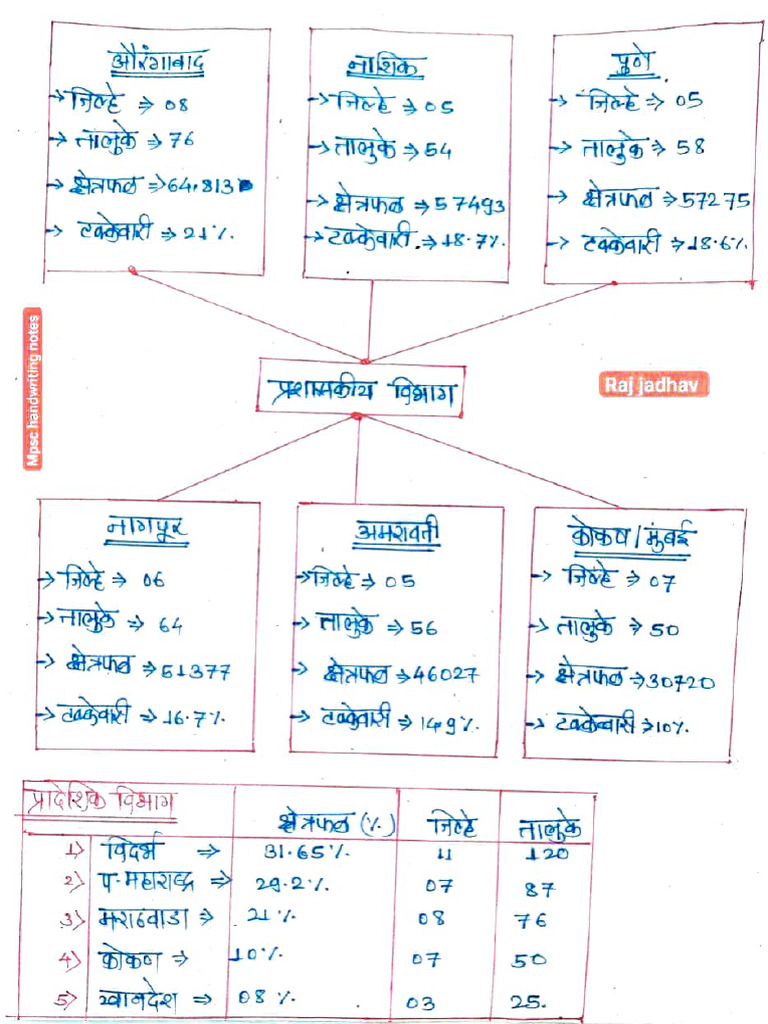 औरंगाबाद
→ जिल्हे ⇒ 08
→ तालुके ⇒ 76
→ क्षेत्रफळ ⇒ 64.813
→ टक्केवारी ⇒ 21%.
नाशिक
→ जिल्हे ⇒ 05
→ तालुके ⇒ 54
→ क्षेत्रफळ ⇒ 57493
→ टक्केवारी ⇒ 18.7%.
पुणे
→ जिल्हे ⇒ 05
→ तालुके ⇒ 58
→ क्षेत्रफळ ⇒ 57275
→ टक्केवारी ⇒ 18.6%
Mpsc handwriting notes
प्रशासकीय विभाग
Raj jadhav
नागपूर
→ जिल्हे ⇒ 06
→ तालुके ⇒ 64
→ क्षेत्रफळ ⇒ 51377
→ टक्केवारी ⇒ 16.7%.
अमरावती
→ जिल्हे ⇒ 05
→ तालुके ⇒ 56
→ क्षेत्रफळ ⇒ 46027
→ टक्केवारी ⇒ 14.9%
कोकण/मुंबई
→ जिल्हे ⇒ 07
→ तालुके ⇒ 50
→ क्षेत्रफळ ⇒ 30720
→ टक्केवारी ⇒ 10%.
प्रादेशिक विभाग क्षेत्रफळ (%) जिल्हे तालुके
1) विदर्भ ⇒ 31.65%. 11 120
2) प.महाराष्ट्र ⇒ 29.2%. 07 87
3) मराठवाडा ⇒ 21% 08 76
4) कोकण ⇒ 10%. 07 50
5) खानदेश ⇒ 08% 03 25.